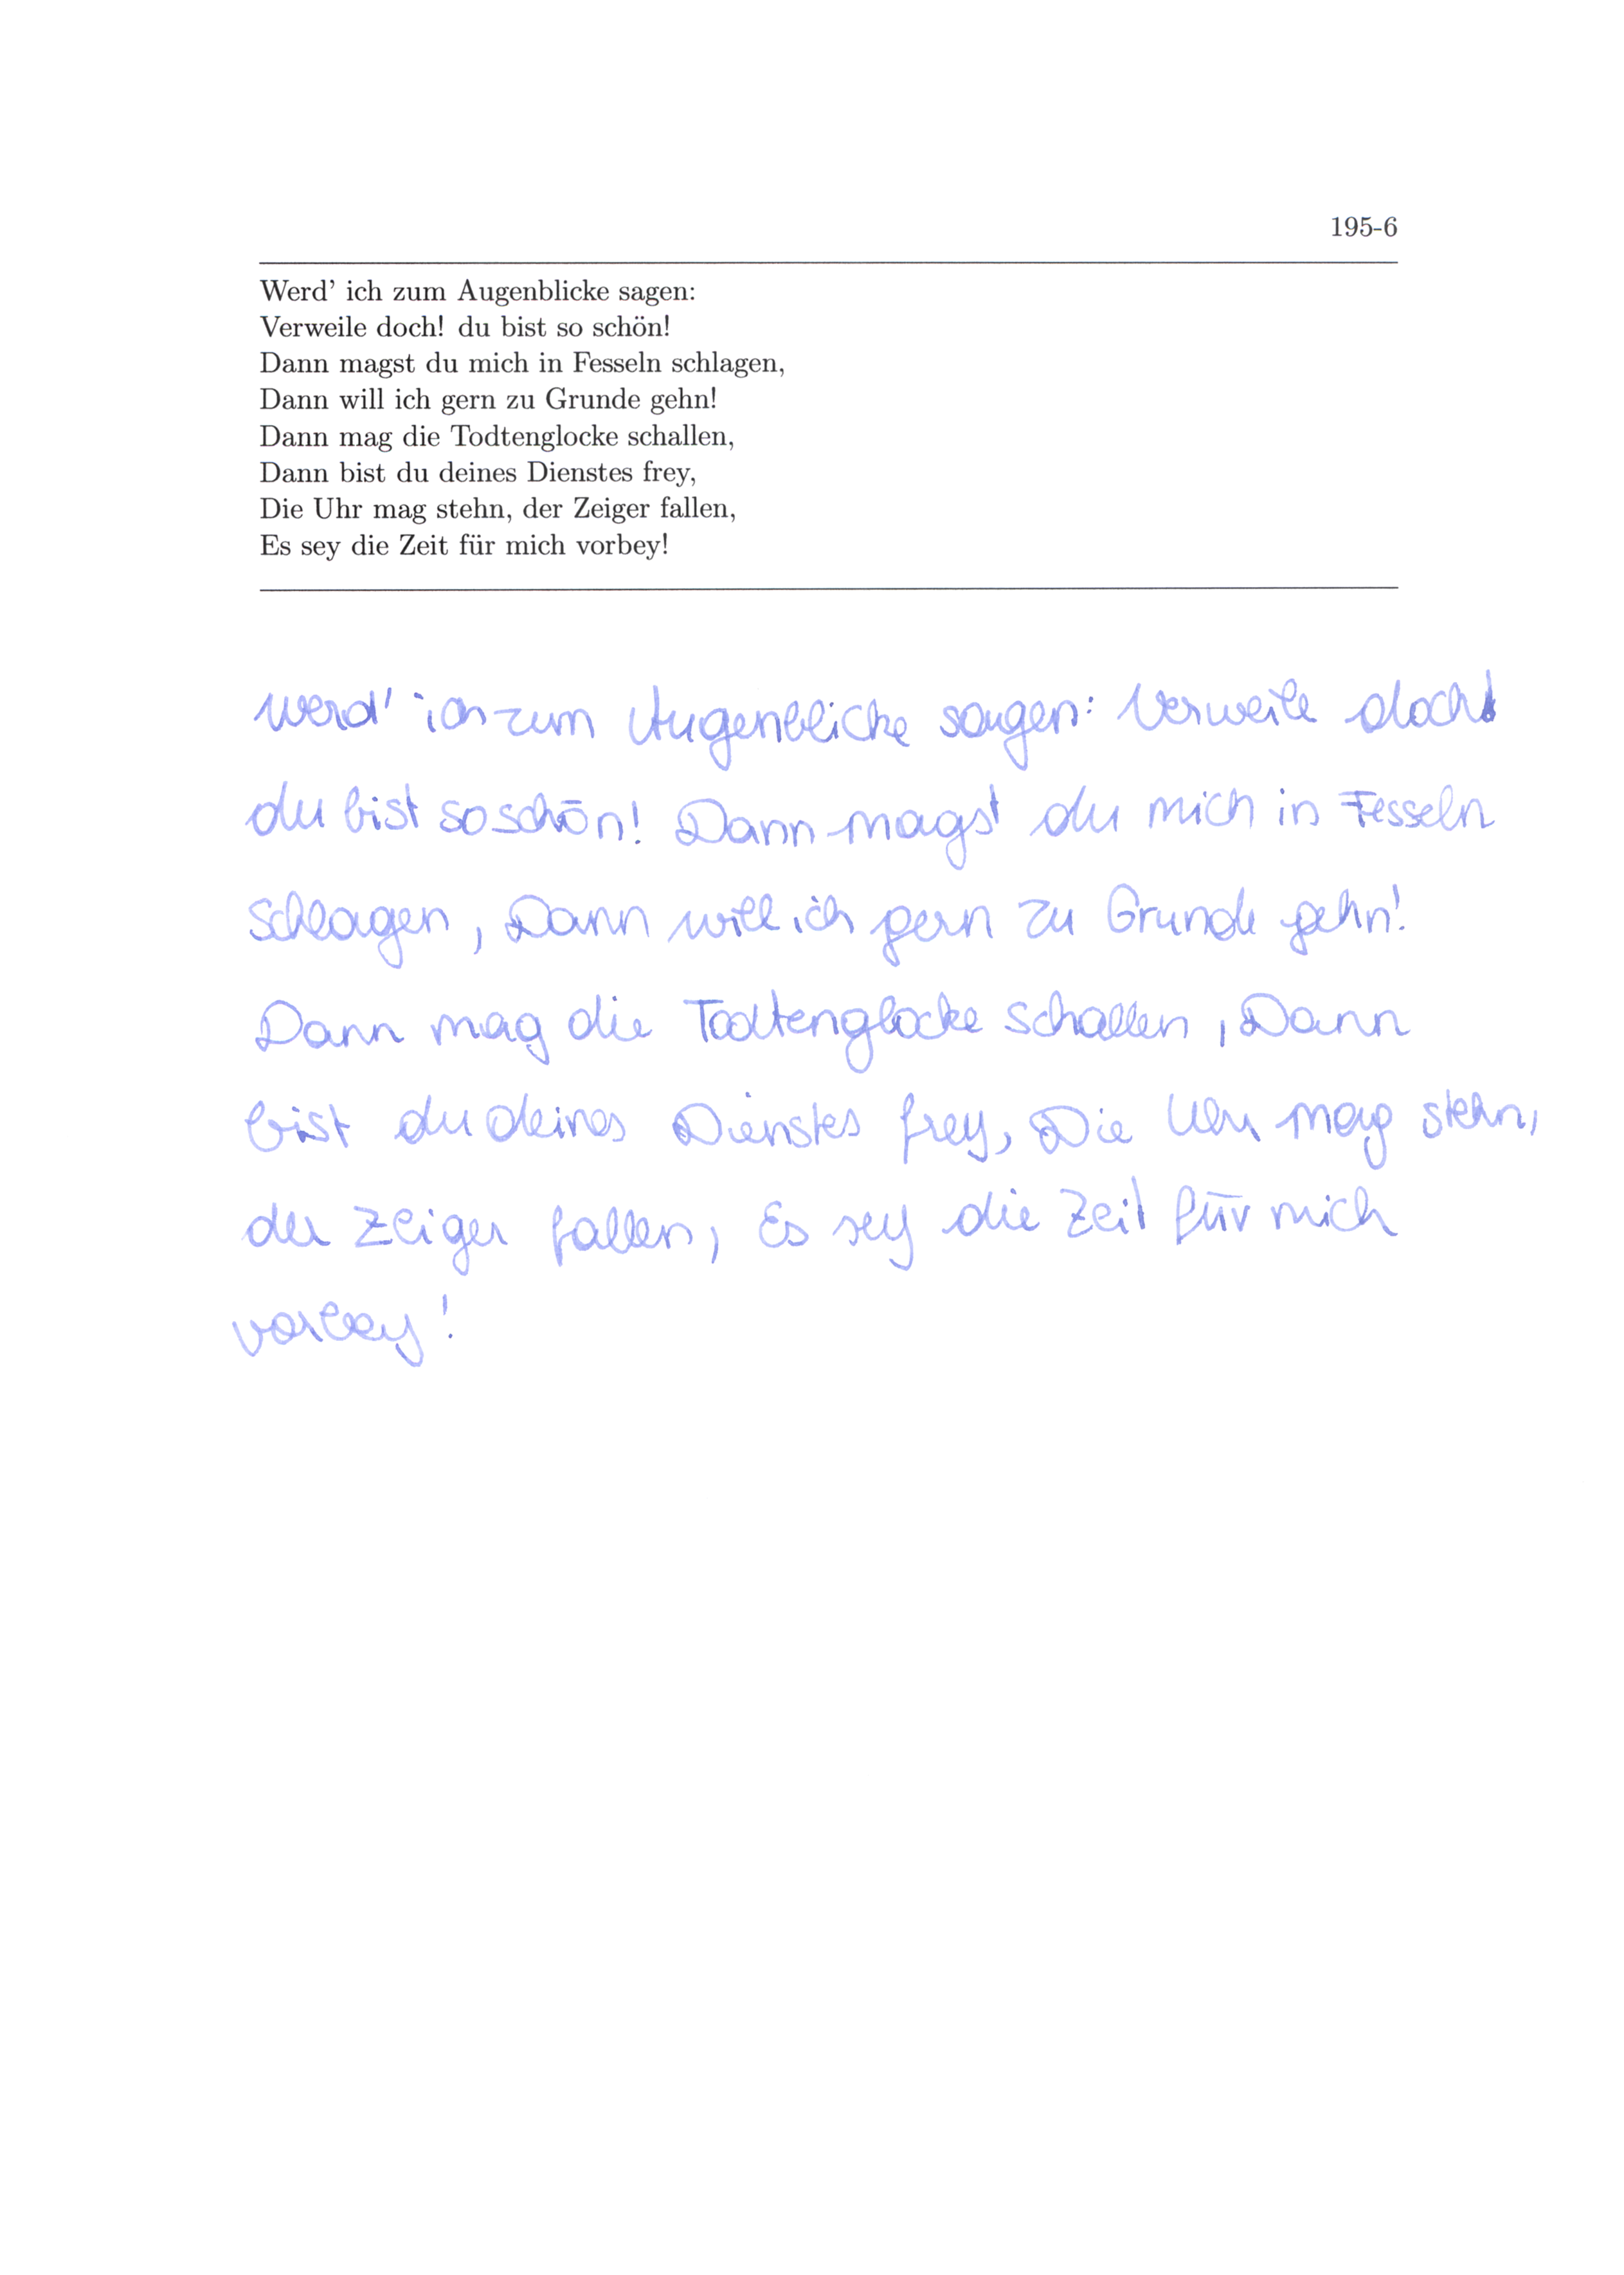 195-6
Werd' ich zum Augenblicke sagen:
Verweile doch! du bist so schön!
Dann magst du mich in Fesseln schlagen,
Dann will ich gern zu Grunde gehn!
Dann mag die Todtenglocke schallen,
Dann bist du deines Dienstes frey,
Die Uhr mag stehn, der Zeiger fallen,
Es sey die Zeit für mich vorbey!
Werd' ich zum Augenblicke sagen: Verweile doch!
du bist so schön! Dann magst du mich in Fesseln
schlagen, Dann will ich gern zu Grunde gehn!
Dann mag die Todtenglocke schallen, Dann
bist du deines Dienstes frey, Die Uhr mag stehn,
der Zeiger fallen, Es sey die Zeit für mich
vorbey!